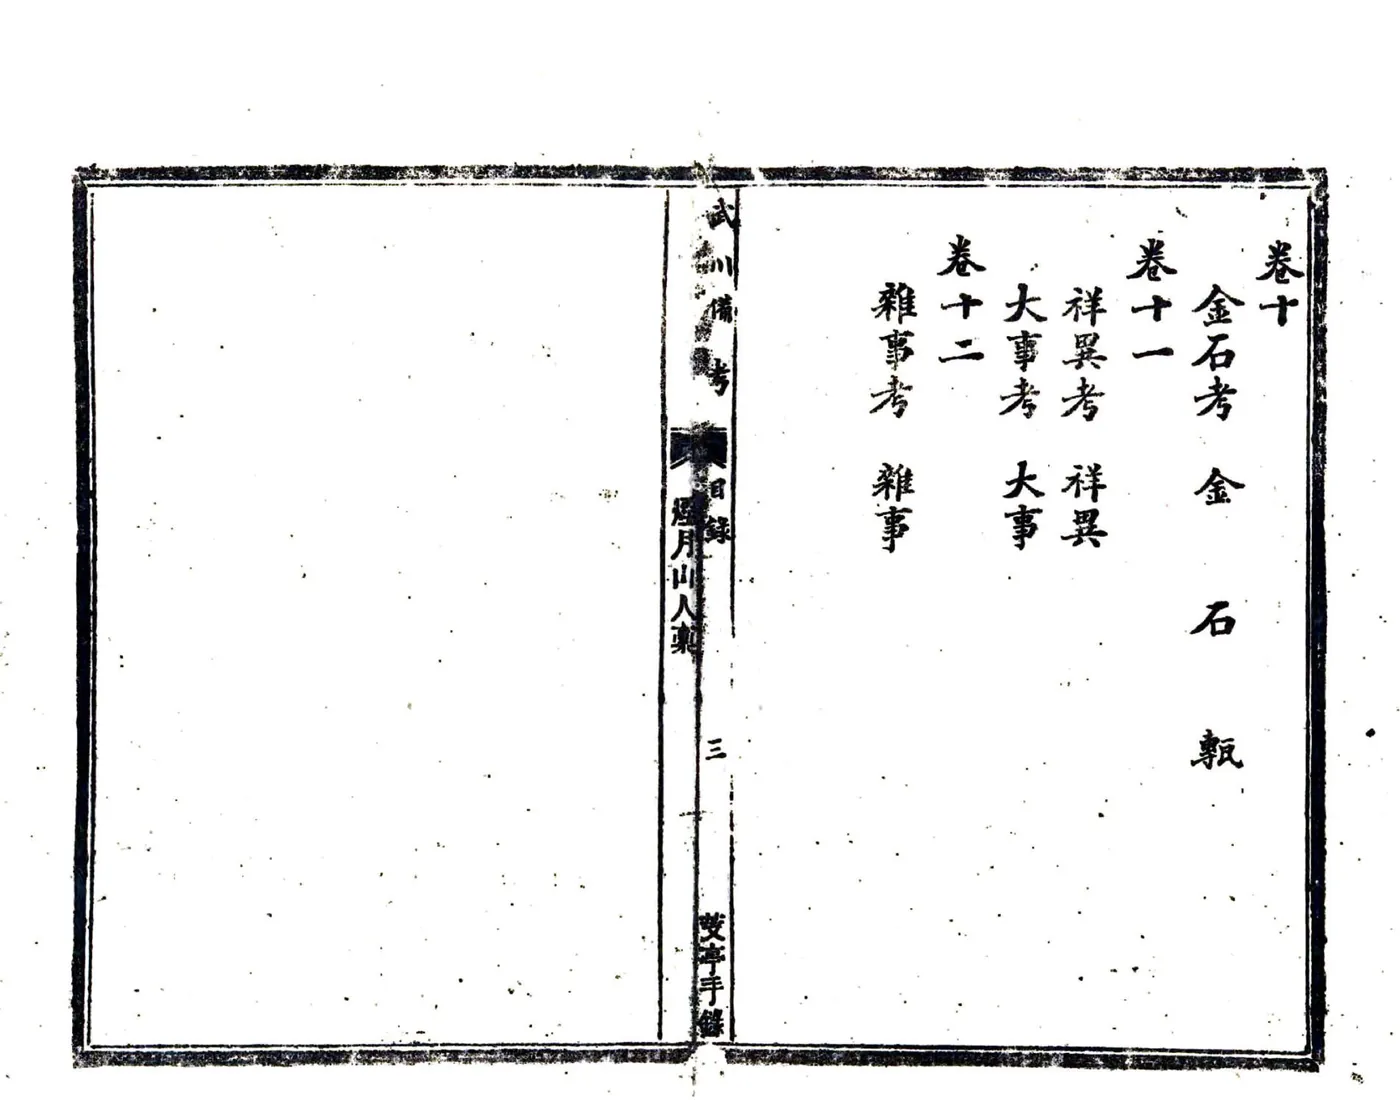 卷十
金石考 金 石 甎
卷十一
祥異考 祥異
大事考 大事
卷十二
雜事考 雜事
武川備考
目錄
三
亭手錄
月山人藁